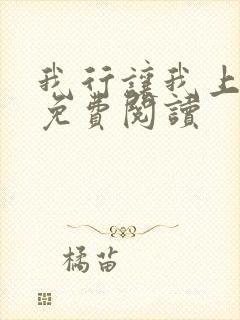 我行讓我上
免費閱讀
橘苗